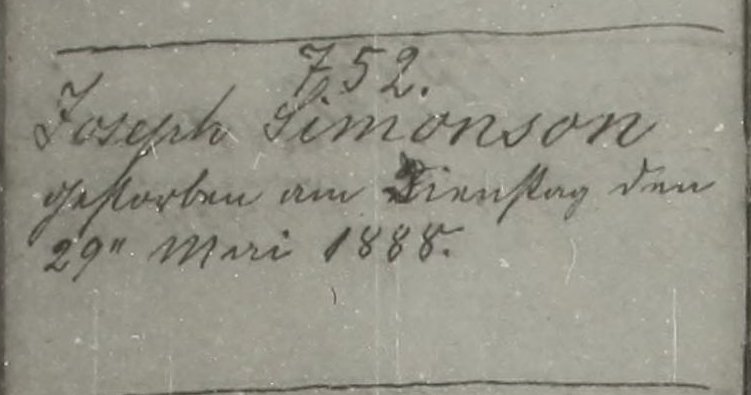 752.
Joseph Simonson
gestorben am Dienstag den
29" Mai 1888.